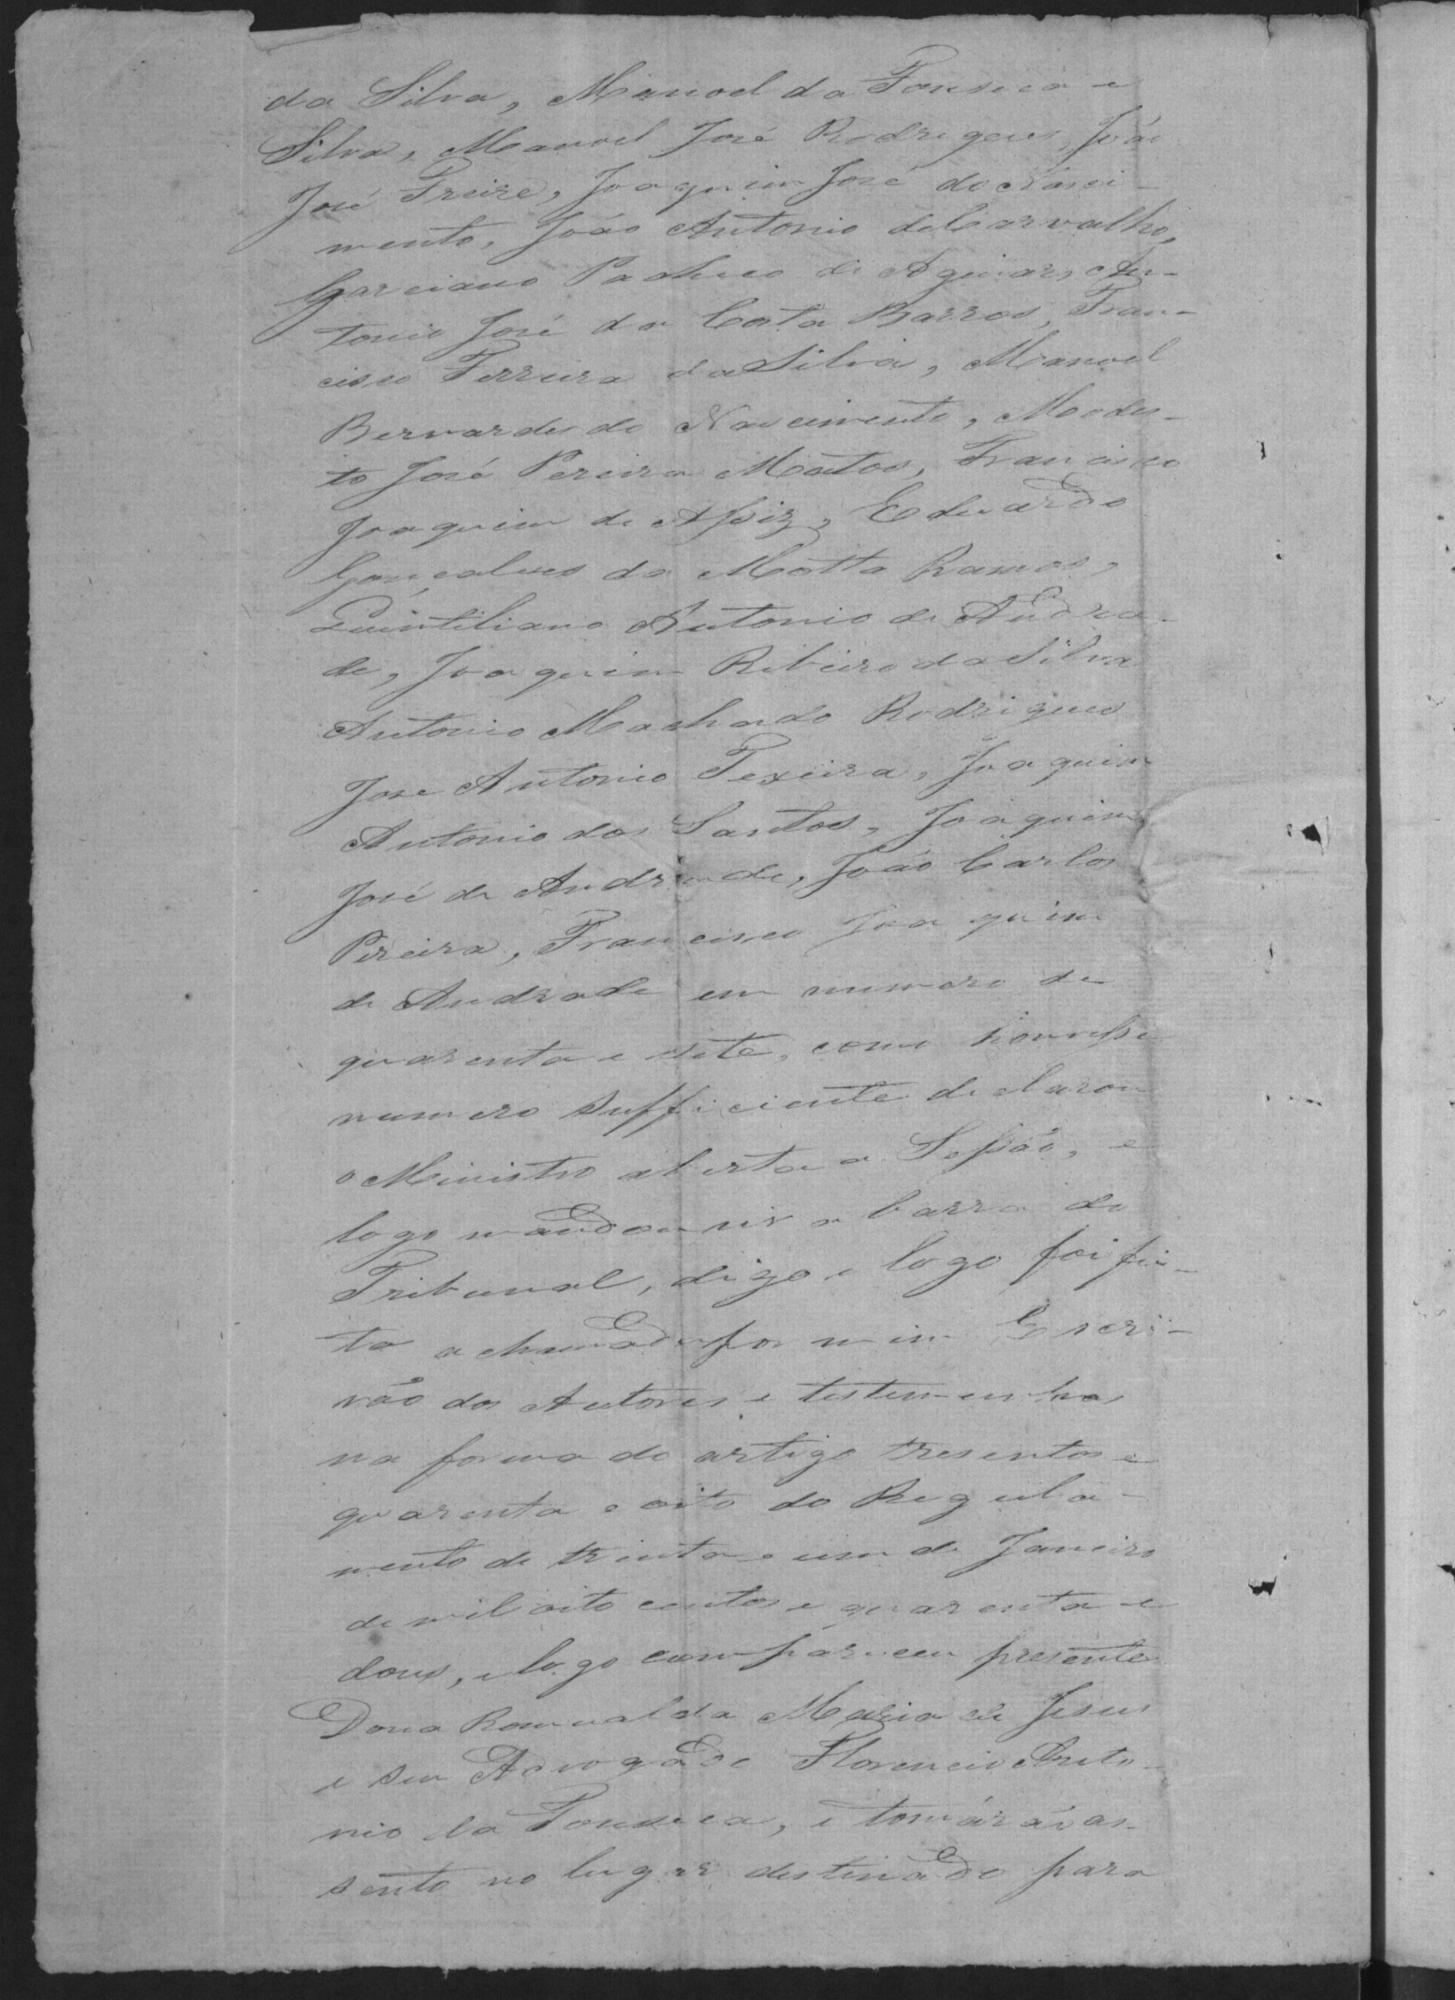 da Silva, Manoel da Fonseca e
Silva, Manoel José Rodrigues, João
José Freire, Joaquim José do Nasci-
mento, João Antonio de Carvalho,
Garciano Pacheco de Aguiar, An-
tonio José da Costa Barros, Fran-
cisco Ferreira da Silva, Manoel
Bernardes do Nascimento, Modes-
to José Pereira Mattos, Francisco
Joaquim de Assiz, Eduardo
Gonçalves da Motta Ramos,
Quintiliano Antonio de Andra-
de, Joaquim Ribeiro da Silva
Antonio Machado Rodrigues
Jose Antonio Texeira, Joaquim
Antonio dos Santos, Joaquim
José de Andrade, João Carlos
Pereira, Francisco Joaquim
de Andrade em numero de
quarenta e sete, como houvesse
numero sufficiente declarou
o Ministro aberta a Sessão, e
logo mandou vir a barra do
Tribunal, digo e logo foi fei-
ta a chamada por mim Escri-
vão dos Autores e testemunhas
na forma do artigo tresentos e
quarenta e oito do Regula-
mento de trinta e um de Janeiro
de mil oito centos e quarenta e
dous, e logo compareceu presente
Dona Romualda Maria de Jesus
e seu Advogado Florencio Anto-
nio da Fonseca, e tomárão as-
sento no lugar destinado para